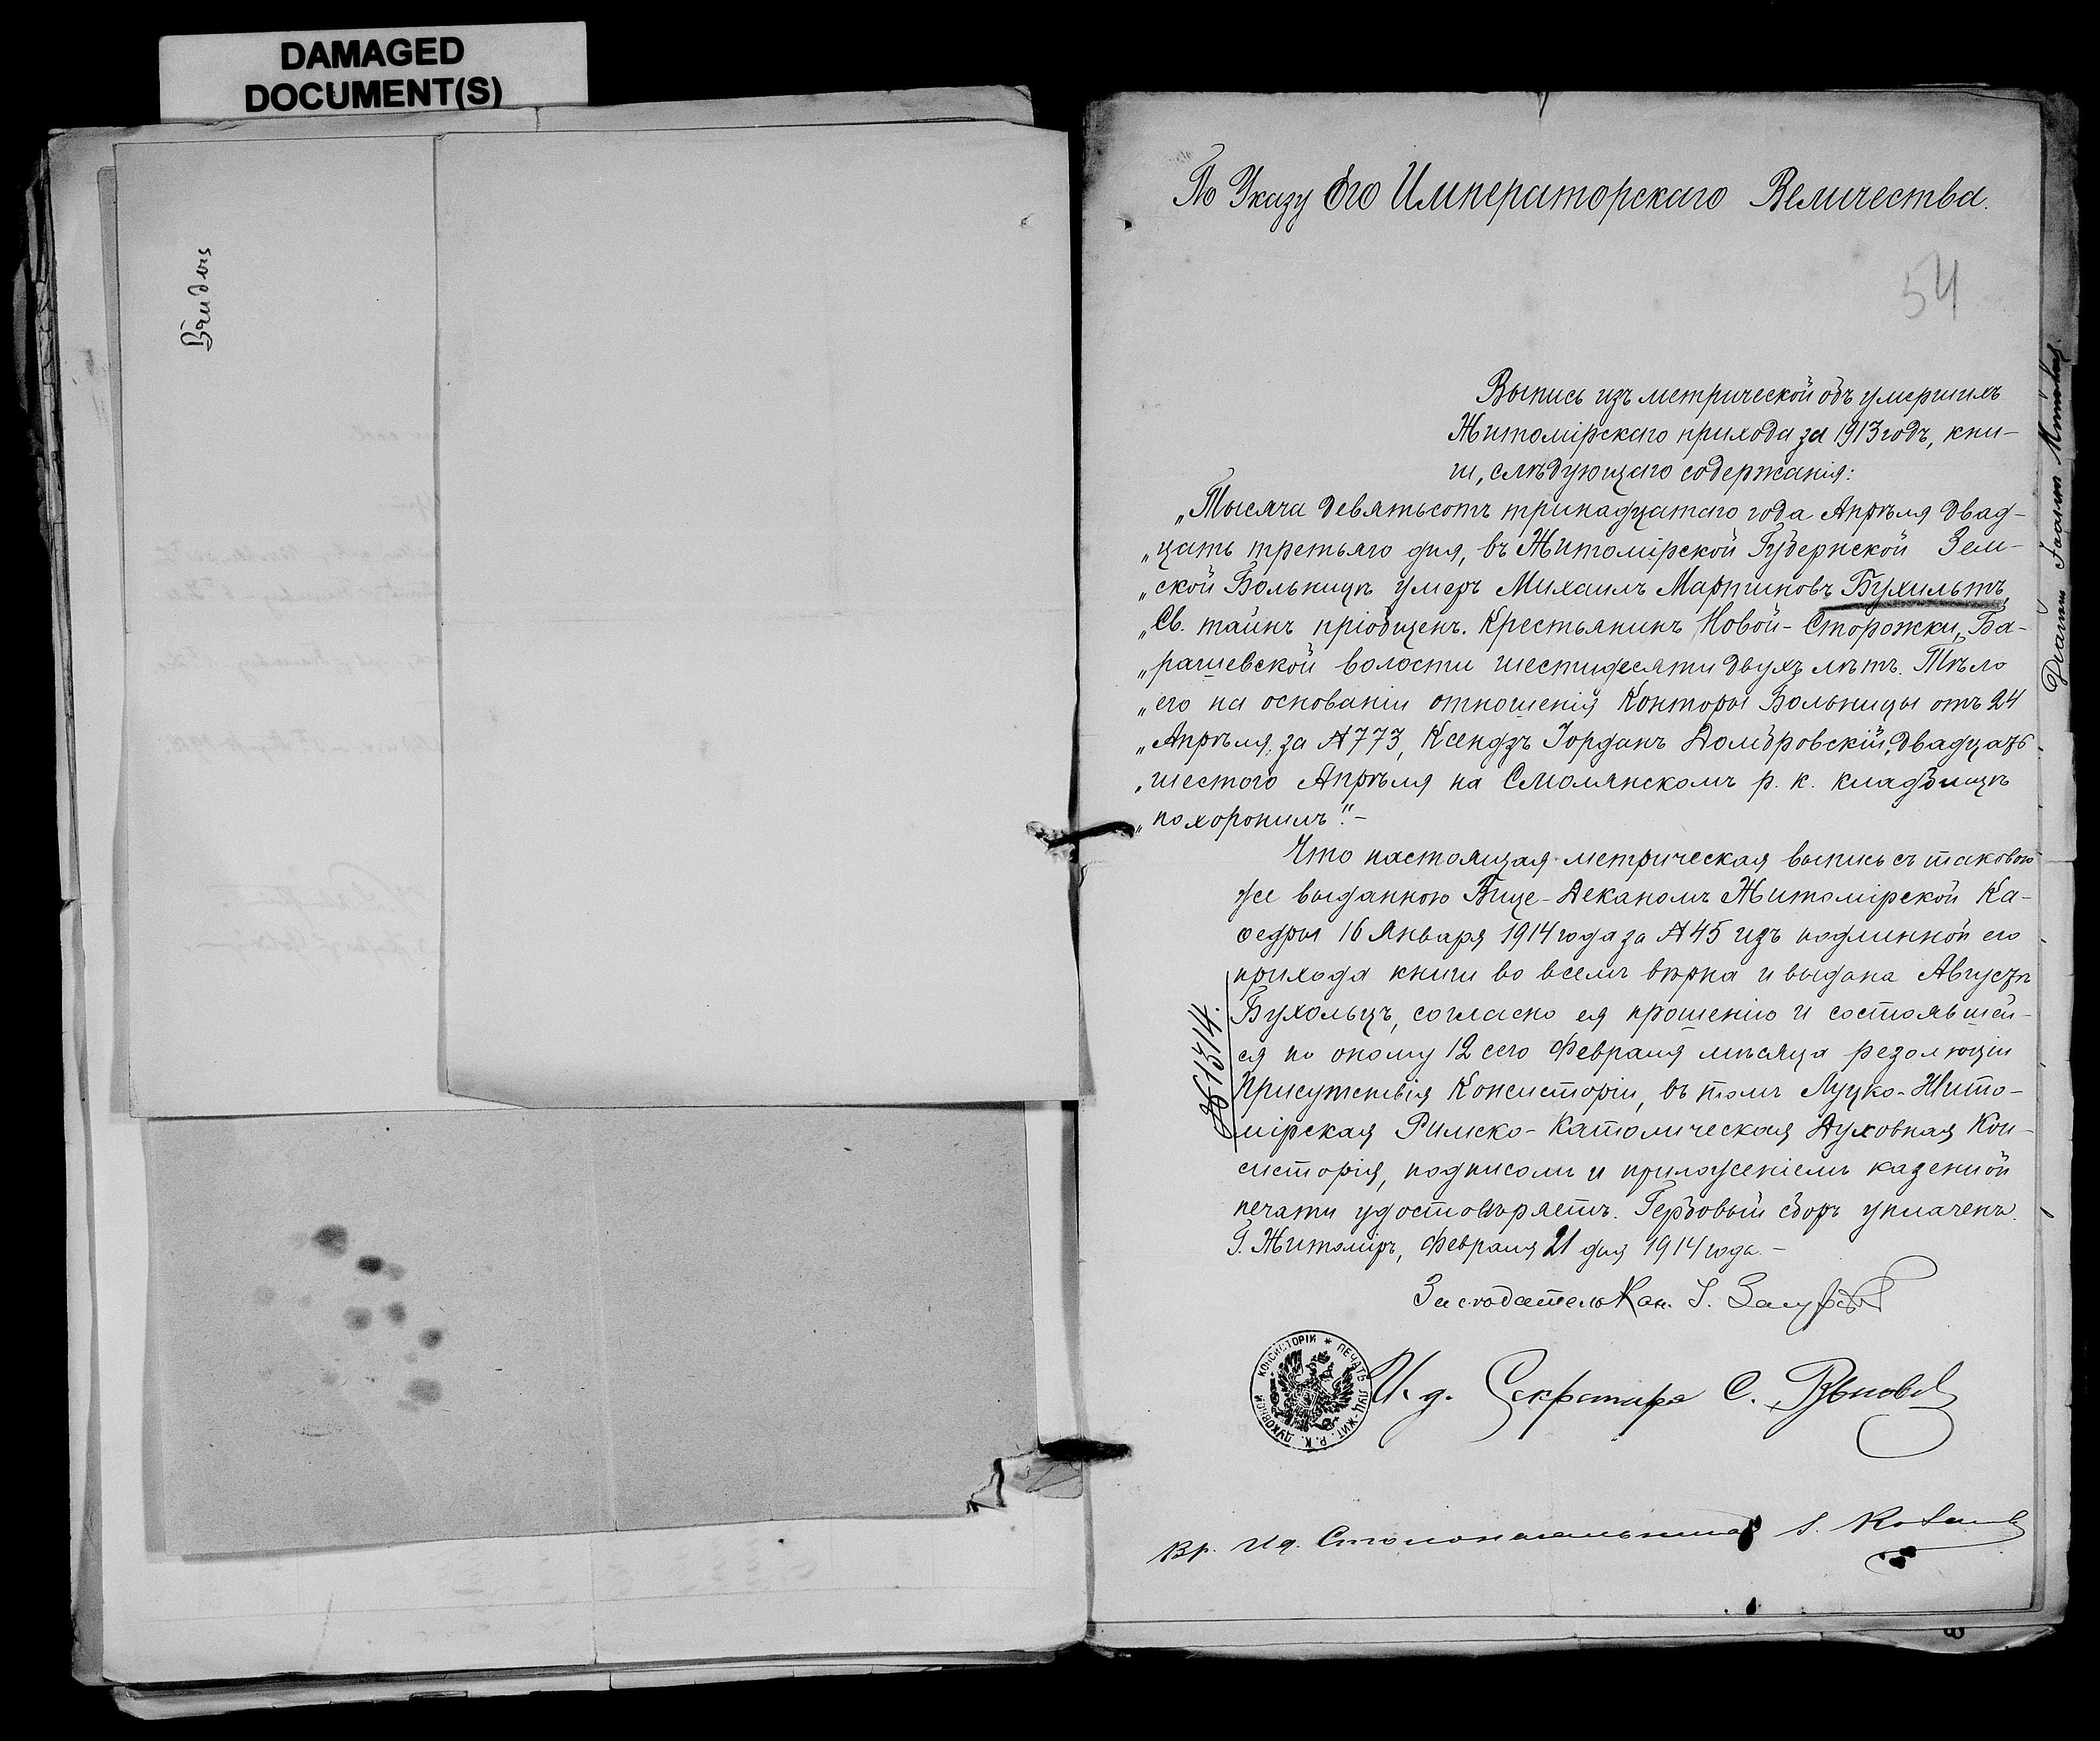 DAMAGED
DOCUMENT(S)
По Указу Его Императорскаго Величества.
54
Выпись изъ метрической объ умершихъ
Житомірскаго прихода за 1913 годъ, кни-
ги, слѣдующаго содержанія:
„Тысяча девятьсотъ тринадцатаго года Апрѣля двад-
„цать третьяго дня, въ Житомірской Губернской Зем-
„ской Больницѣ умеръ Михаилъ Мартиновъ Бухильтъ,
„Св. тайнъ пріобщенъ. Крестьянинъ Новой-Сторожки, Ба-
„рашевской волости шестидесяти двухъ лѣтъ. Тѣло
„его на основаніи отношенія Конторы Больницы отъ 24
„Апрѣля за № 773, Ксендзъ Іорданъ Домбровскій, двадцать
„шестого Апрѣля на Смолянскомъ р. к. кладбищѣ
„похоронилъ“.-
Что настоящая метрическая выпись съ таковою
же выданною Вице-Деканомъ Житомірской Ка-
ѳедры 16 Января 1914 года за № 45 изъ подлинной его
прихода книги во всемъ вѣрна и выдана Августѣ
Бухольцъ, согласно ея прошенію и состоявшей-
ся по оному 12 сего Февраля мѣсяца резолюціи
Присутствія Консисторіи, въ томъ Луцко-Жито-
мірская Римско-Католическая Духовная Кон-
систорія, подписомъ и приложеніемъ казенной
печати удостовѣряетъ. Гербовый сборъ уплаченъ.
Г. Житоміръ, Февраля 21 дня 1914 года.-
№ 1514.
Засѣдатель Кан.
И. д. Секретаря С.
ПЕЧАТЬ ЛУЦ.-ЖИТ. Р. К. ДУХОВНОЙ КОНСИСТОРІИ
Вр. И д. Столоначальника
8